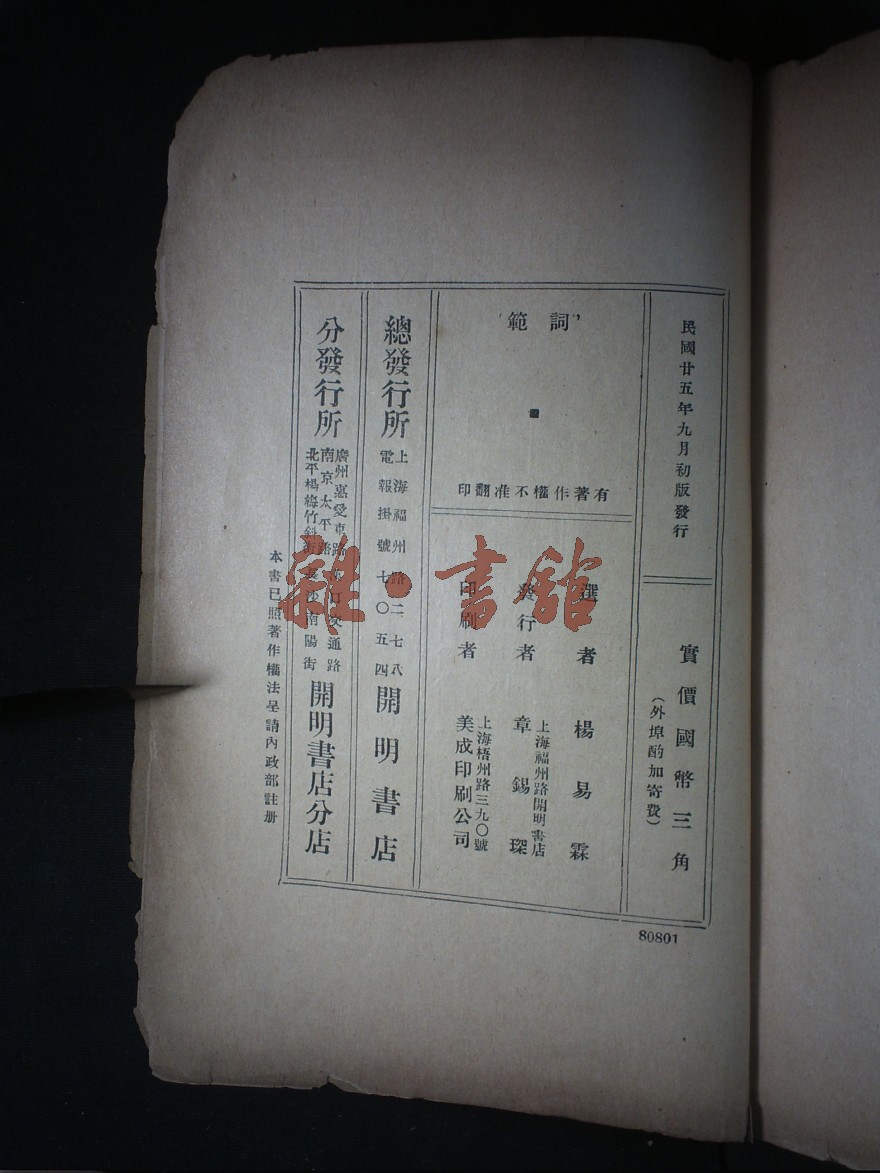 民國廿五年九月初版發行
實價國幣三角
（外埠酌加寄費）
詞範
有著作權不准翻印
選者 楊易霖
發行者 章錫琛
上海福州路開明書店
印刷者 美成印刷公司
上海梧州路三九〇號
總發行所 開明書店
上海福州路二七八
電報掛號七〇五四
分發行所 開明書店分店
廣州惠愛東路 交通路
南京太平路 長沙南陽街
北平楊梅竹斜街
本書已照著作權法呈請內政部註册
80801
雜·書館